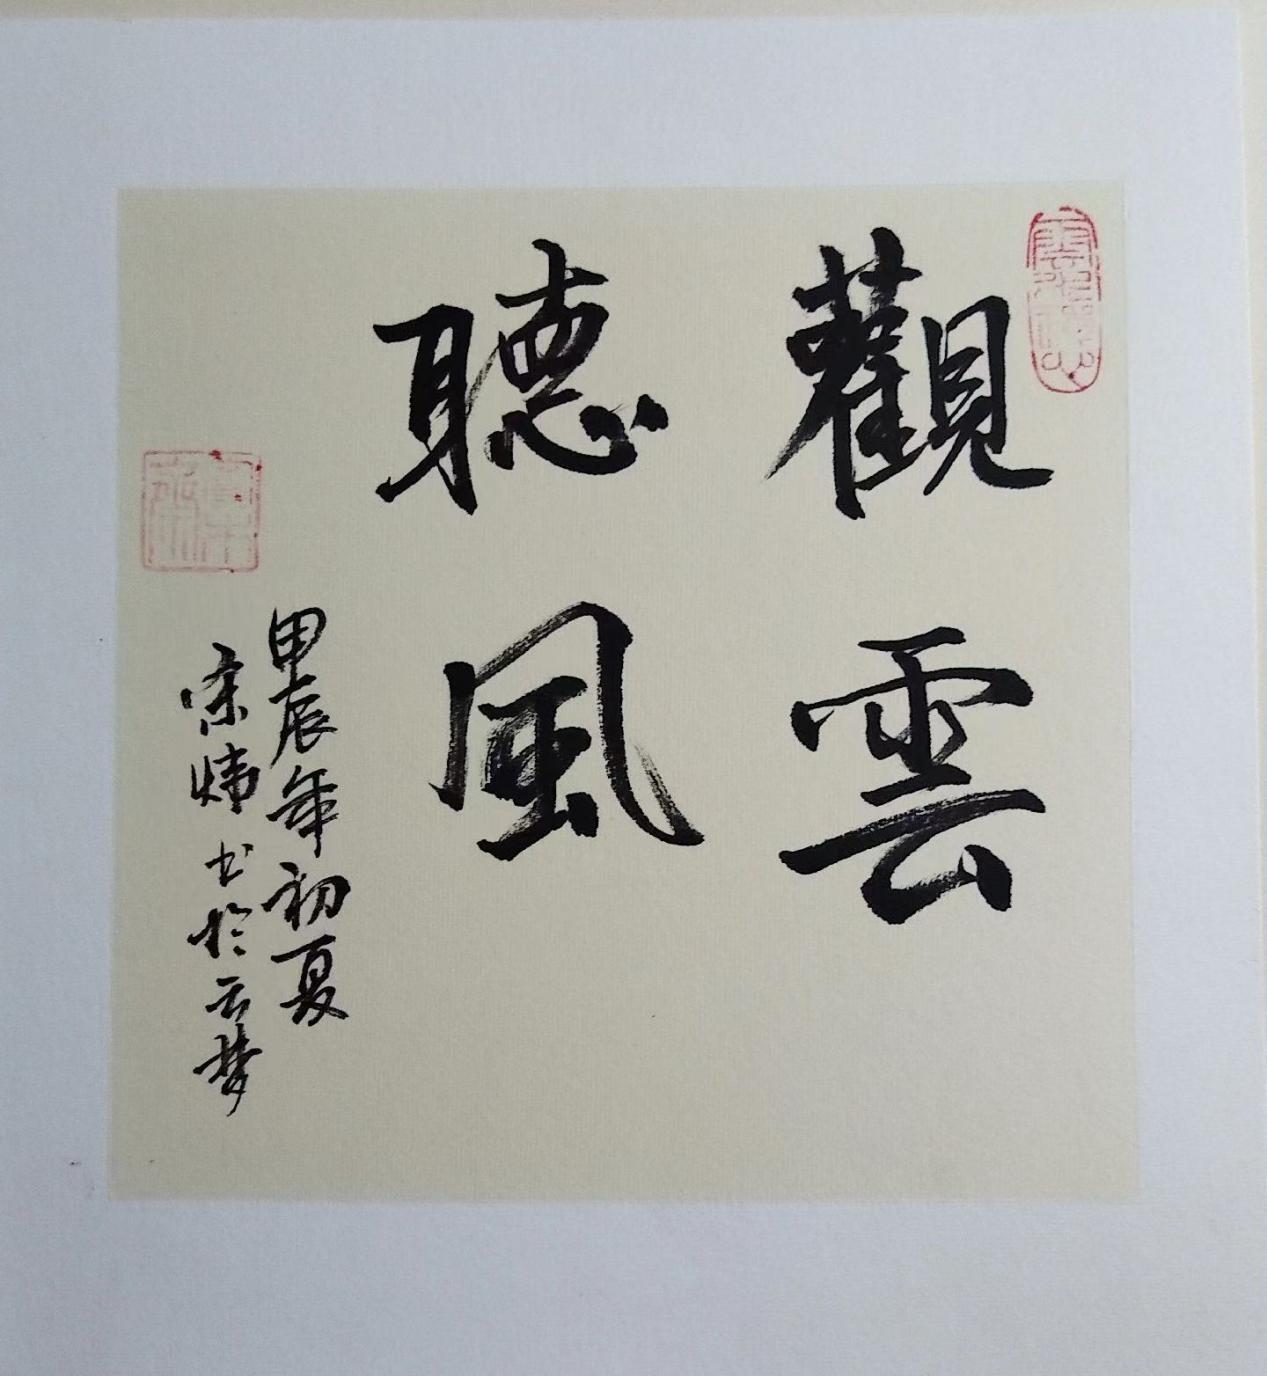 觀雲
聽風
甲辰年初夏
宗炜书於云梦